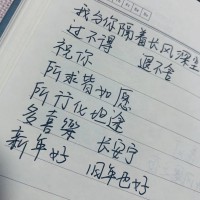 我与你隔着长风深尘
过不得 退不舍
祝你
所求皆如愿
所行化坦途
多喜乐 长安宁
新年好 旧年也好